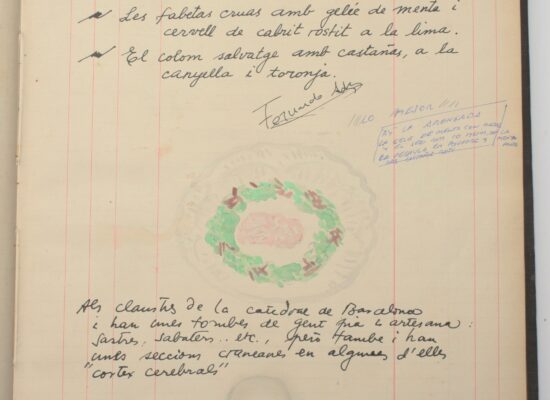 Les fabetas cruas amb gelée de menta i
cervell de cabrit rostit a la lima.
El colom salvatge amb castañas, a la
canyella i toronja.
Fernando
LO MEJOR
LA
Als claustres de la catedral de Barcelona
i han unes tombes de gent pia i artesana:
sastres, sabaters.. etc., però tambe i han
unes seccions craneanes en algunes d'elles
"cortex cerebrals"